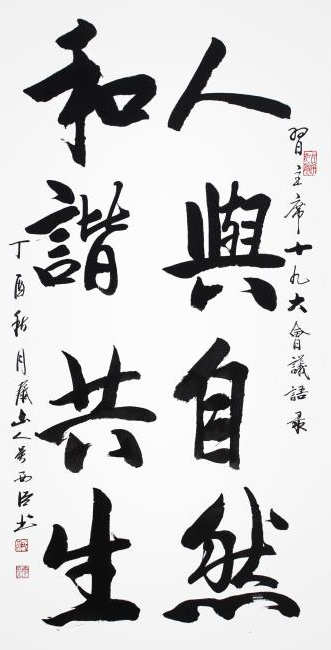 習主席十九大會議語录
人與自然
和諧共生
丁酉秋月山人吴西书